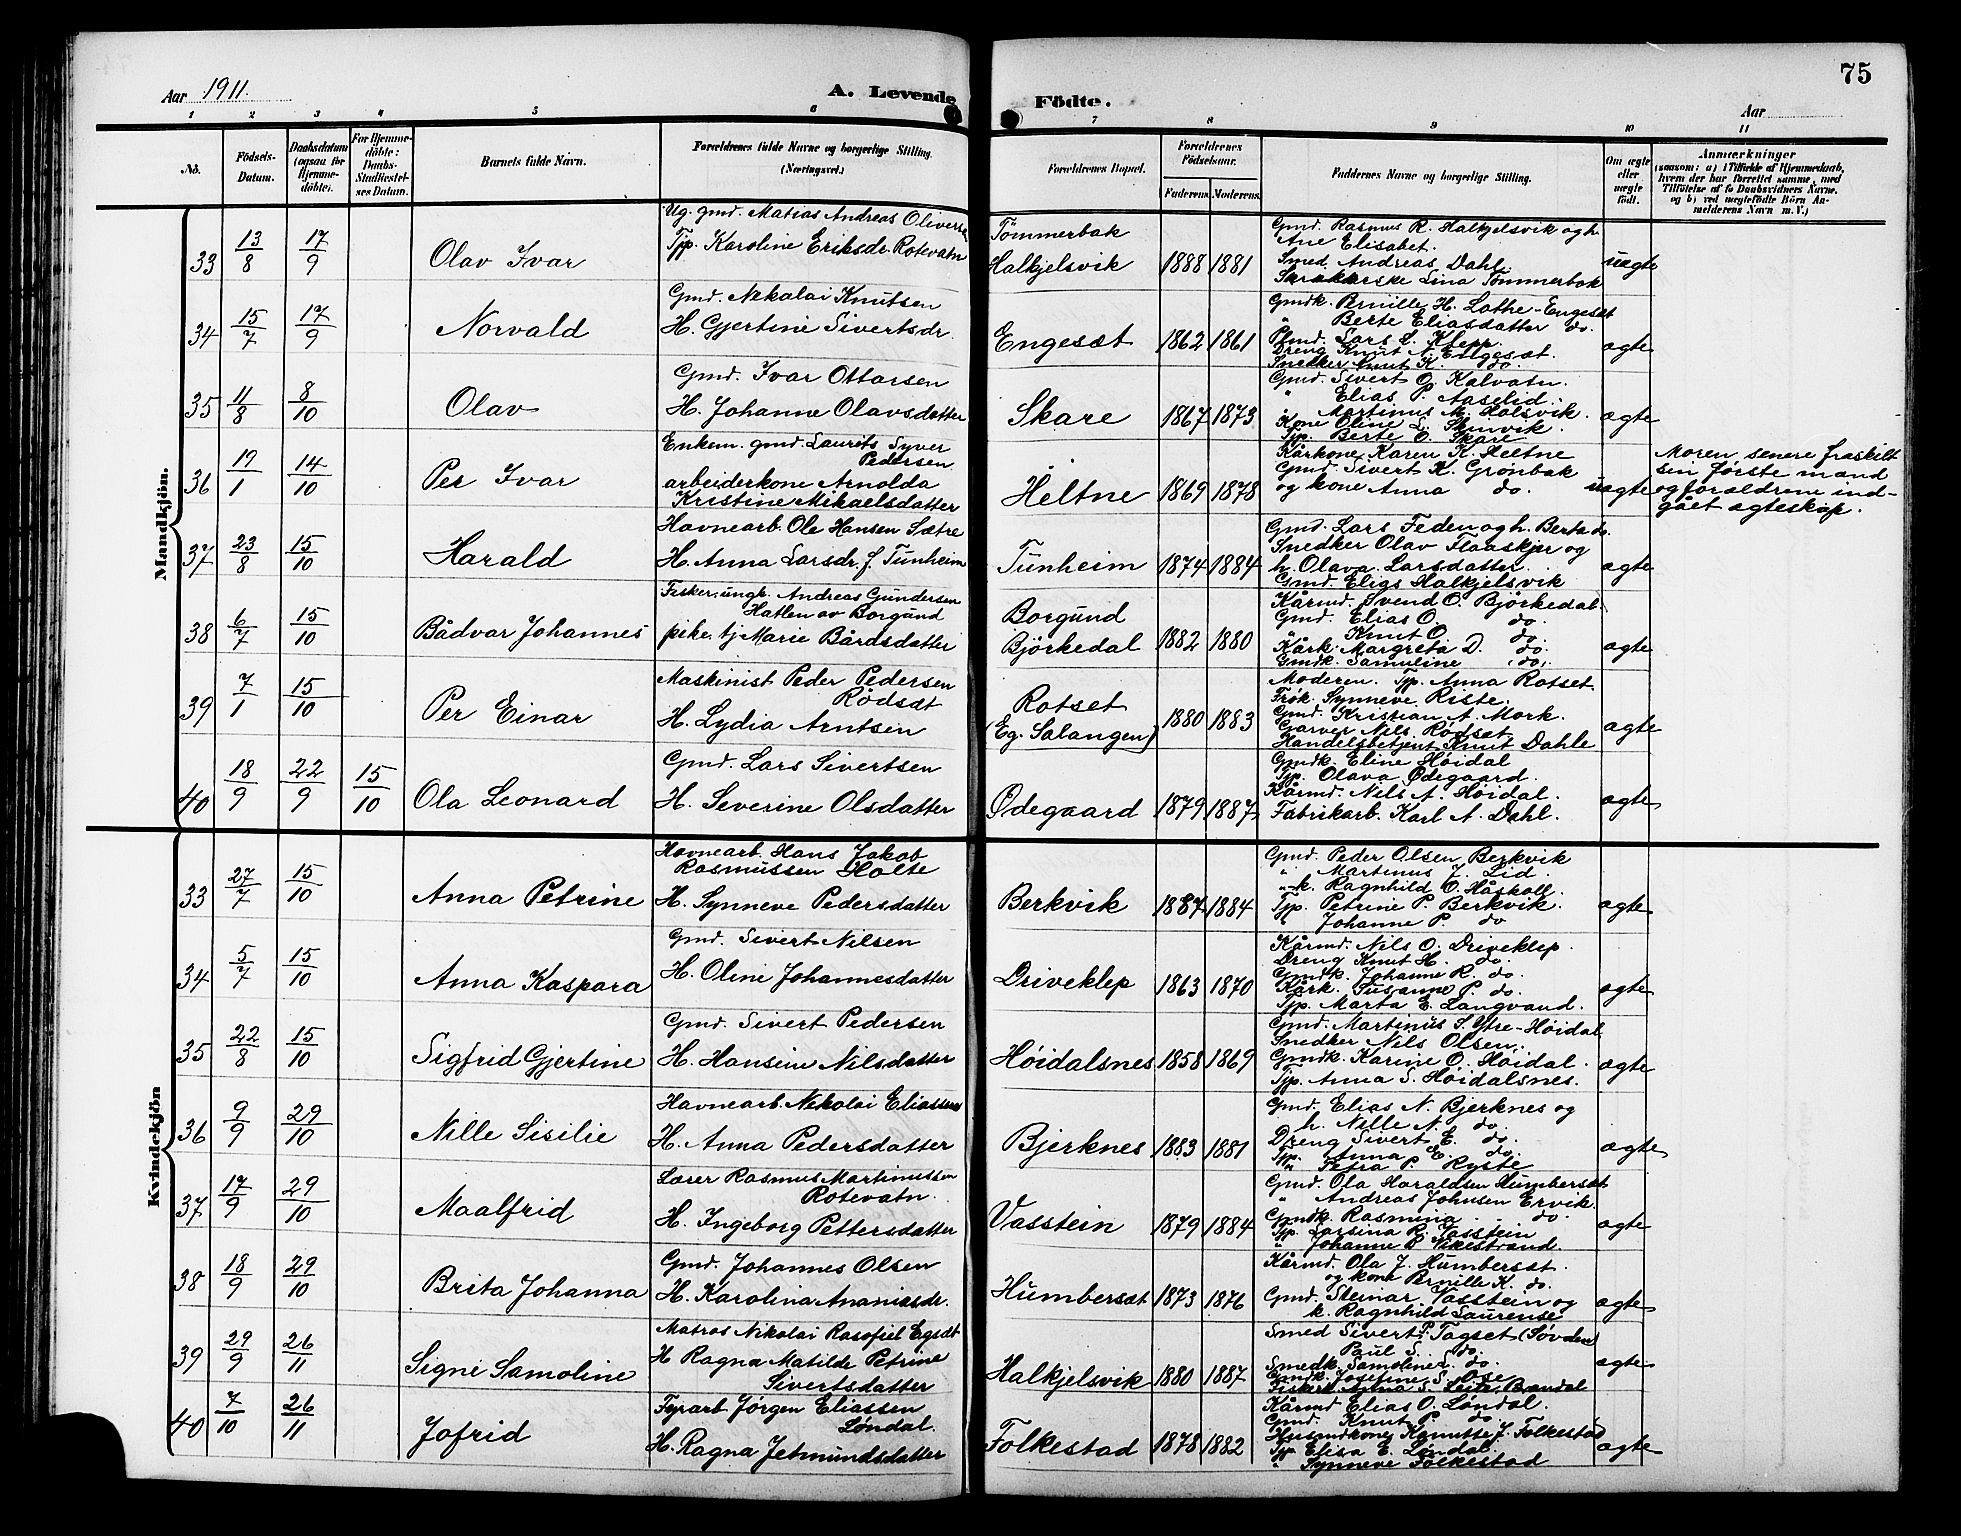 Aar 1911.
A. Levende Födte.
75
Aar
1 2 3 4 5 6 7 8 9 10 11
No.
Födsels-Datum.
Daabsdatum (ogsaa for Hjemme-döbte).
For Hjemme-döbte: Daabs-Stadfæstel-ses Datum.
Barnets fulde Navn.
Forældrenes fulde Navne og borgerlige Stilling. (Næringsvei.)
Forældrenes Bopæl.
Forældrenes Födselsaar.
Faderens Moderens
Faddernes Navne og borgerlige Stilling.
Om ægte eller uægte födt.
Anmærkninger
(saasom: a) i Tilfælde af Hjemmedaab, hvem der har forrettet samme, med Tilföielse af to Daabsvidners Navne, og b) ved uægtefödte Börn An-melderens Navn m. V.)
Mandkjön.
33 13/8 17/9 Olav Ivar
Ug. gmd. Matias Andreas Oliversen
Tp. Karoline Eriksdr. Rotevatn
Tømmerbak
Halkjelsvik 1888 1881
Gmd. Rasmus R. Halkjelsvik og h.
Ane Elisabet.
Smed. Andreas Dahl.
Lina Tømmerbak
uægte
34 15/7 17/9 Norvald
Gmd. Nikolai Knutsen
H. Gjertine Sivertsdr.
Engesæt 1862 1861
Gmdk. Pernille H. Lothe-Engesæt
" Berte Eliasdatter do.
Lars L. Klepp.
Dreng Knut N. Engesæt.
Snedker Knut K. do.
ægte
35 11/8 8/10 Olav
Gmd. Ivar Ottarsen
H. Johanne Olavsdatter
Skare 1867 1873
Gmd. Sivert O. Kalvatn.
" Elias P. Aaselid.
" Martinus M. Halsvik.
Kone Oline L.
Tp. Berte O. Skare
ægte
36 17/1 14/10 Per Ivar
Enkem. gmd. Laurits Syver
Pedersen
arbeiderkone Arnolda
Kristine Mikaelsdatter
Heltne 1869 1878
Kårkone Karen K. Heltne
Gmd. Sivert K. Grønbak
og kone Anna do.
uægte
Moren senere fraskilt
sin første mand
og forældrene ind-
gået ægteskap.
37 23/8 15/10 Harald
Havnearb. Ole Hansen Sætre
H. Anna Larsdr. f. Tunheim
Tunheim 1874 1884
Gmd. Lars Feden og h. Berta do.
Snedker Olav Flaaskjer og
h. Olava Larsdatter.
Gmd. Elias Halkjelsvik
ægte
38 6/7 15/10 Bådvar Johannes
Fisker, ungk. Andreas Gundersen
Hatlen av Borgund
pike, tj Marie Bårdsdatter
Borgund
Björkedal 1882 1880
Kårmd. Svend O. Björkedal.
Gmd. Elias O. do.
" Knut O. do.
Kårk. Margreta D. do.
Gmdk. Samuline do.
ægte
39 7/1 15/10 Per Einar
Maskinist Peder Pedersen
Rödsæt
H. Lydia Arntsen
Rotset
(Eg. Salangen) 1880 1883
Moderen. Tp. Anna Rotset.
Frøk. Synneve Riste.
Gmd. Kristian A. Mork.
Garver Nils Rödsæt
Handelsbetjent Knut Dahle
ægte
40 18/9 22/9 15/10 Ola Leonard
Gmd. Lars Sivertsen
H. Severine Olsdatter
Ødegaard 1879 1887
Gmdk. Eline Høidal
Tp. Olava Ødegaard.
Kårmd. Nils A. Høidal.
Fabrikarb. Karl A. Dahl.
ægte
Kvindekjön
33 27/7 15/10 Anna Petrine
Havnearb. Hans Jakob
Rasmussen Holte
H. Synneve Pedersdatter
Berkvik 1887 1884
Gmd. Peder Olsen Berkvik
" Martinus J. Lid.
"-k. Ragnhild O. Håskoll.
Tp. Petrine P. Berkvik.
" Johanne P. do
ægte
34 5/7 15/10 Anna Kaspara
Gmd. Sivert Nilsen
H. Oline Johannesdatter
Driveklep 1863 1870
Kårmd. Nils O. Driveklep.
Dreng Knut H. do.
Gmdk. Johanne R. do.
Kårk. Susanne P. do.
Tp. Marta E. Langvand.
ægte
35 22/8 15/10 Sigfrid Gjertine
Gmd. Sivert Pedersen
H. Hansine Nilsdatter
Høidalsnes 1858 1869
Gmd. Martinus S. Ytre-Höidal
Snedker Nils Olsen.
Gmdk. Karine O. Høidal.
Tp. Anna S. Høidalsnes.
ægte
36 9/9 29/10 Nille Sisilie
Havnearb. Nikolai Eliassen
H. Anna Pedersdatter
Bjerknes 1883 1881
Gmd. Elias N. Bjerknes og
h. Nille N. do.
Dreng Sivert E. do.
Tp. Anna E. do.
" Petra P. Ryste
ægte
37 17/9 29/10 Maalfrid
Lærer Rasmus Martinussen
Rotevatn.
H. Ingeborg Pettersdatter
Vasstein 1879 1884
Gmd. Ola Haraldsen Humbersæt
" Andreas Johnsen Ervik.
Gmdk. Rasmina do.
Tp. Larsina R. Vasstein
" Johanne P. Vikestrand.
ægte
38 18/9 29/10 Brita Johanna
Gmd. Johannes Olsen
H. Karolina Ananiasdr.
Humbersæt 1873 1876
Kårmd. Ola J. Humbersæt.
og kone Pernille K. do.
Gmd. Steinar Vasstein og
k. Ragnhild Laurense
ægte
39 29/9 26/11 Signe Samoline
Matros Nikolai Rasofiel Egsæt
H Ragna Matilde Petrine
Sivertsdatter
Halkjelsvik 1880 1887
Smed Sivert P. Tagset (Søvden)
Paul S. do.
Smedk. Samoline S. do.
Gmdk. Josefine S. Ose.
Anna S.
ægte
40 7/10 26/11 Jofrid
Fyrarb Jørgen Eliassen
Løndal.
H. Ragna Jetmundsdatter
Folkestad 1878 1882
Kårmd Elias O. Løndal.
Gmd. Knut P. do
Husmdkone Hannitte J. Folkestad
Tp. Elisa E. Løndal.
" Synneve Folkestad
ægte